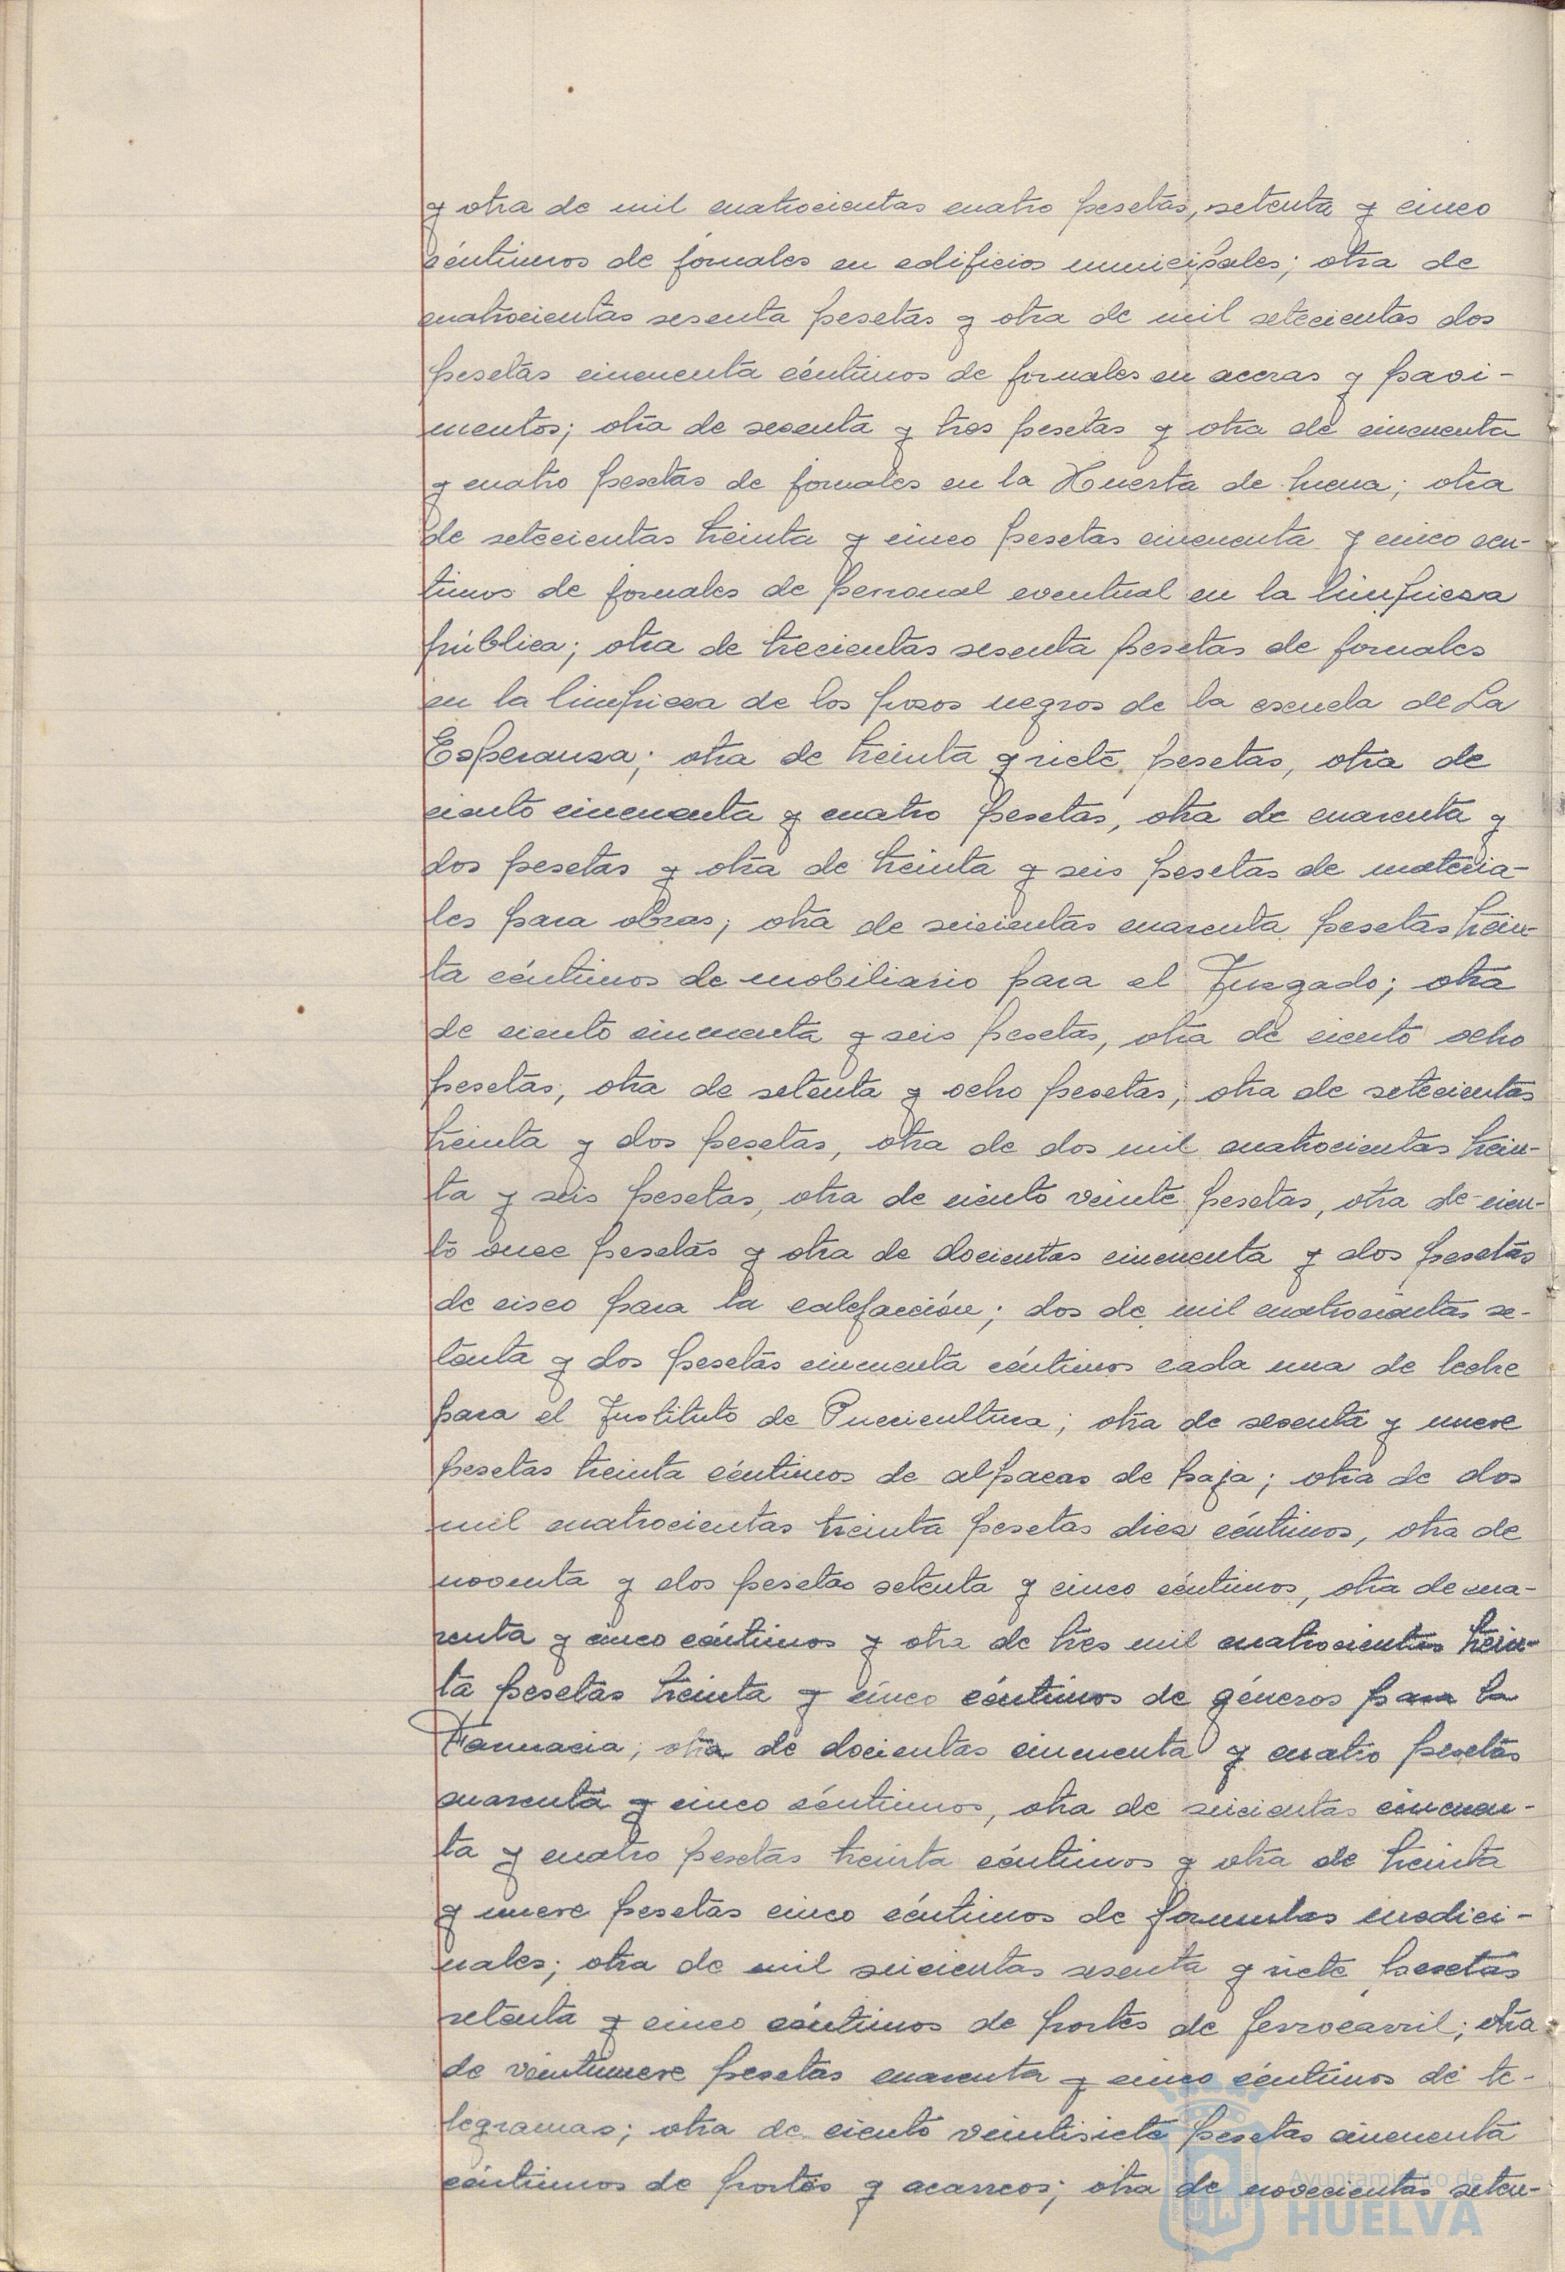 y otra de mil cuatrocientas cuatro pesetas, setenta y cinco
céntimos de jornales en edificios municipales; otra de
cuatrocientas sesenta pesetas y otra de mil setecientas dos
pesetas cincuenta céntimos de jornales en aceras y pavi-
mentos; otra de sesenta y tres pesetas y otra de cincuenta
y cuatro pesetas de jornales en la Huerta de Mena; otra
de setecientas treinta y cinco pesetas cincuenta y cinco cen-
timos de jornales de personal eventual en la limpieza
pública; otra de trecientas sesenta pesetas de jornales
en la limpieza de los pozos negros de la escuela de La
Esperanza; otra de treinta y siete pesetas, otra de
ciento cincuenta y cuatro pesetas, otra de cuarenta y
dos pesetas y otra de treinta y seis pesetas de materia-
les para obras; otra de seicientas cuarenta pesetas trein-
ta céntimos de mobiliario para el Juzgado; otra
de ciento cincuenta y seis pesetas, otra de ciento ocho
pesetas, otra de setenta y ocho pesetas, otra de setecientas
treinta y dos pesetas, otra de dos mil cuatrocientas trein-
ta y seis pesetas, otra de ciento veinte pesetas, otra de cien-
to once pesetas y otra de docientas cincuenta y dos pesetas
de cisco para la calefacción; dos de mil cuatrocientas se-
tenta y dos pesetas cincuenta céntimos cada una de leche
para el Instituto de Puericultura; otra de sesenta y nueve
pesetas treinta céntimos de alpacas de paja; otra de dos
mil cuatrocientas treinta pesetas diez céntimos, otra de
noventa y dos pesetas setenta y cinco céntimos, otra de cua-
renta y cinco céntimos y otra de tres mil cuatrocientas trein-
ta pesetas treinta y cinco céntimos de géneros para la
Farmacia; otra de docientas cincuenta y cuatro pesetas
cuarenta y cinco céntimos, otra de seicientas cincuen-
ta y cuatro pesetas treinta céntimos y otra de treinta
y nueve pesetas cinco céntimos de formulas medici-
nales; otra de mil seicientas sesenta y siete pesetas
setenta y cinco céntimos de portes de ferrocarril; otra
de veintinueve pesetas cuarenta y cinco céntimos de te-
legramas; otra de ciento veintisiete pesetas cincuenta
céntimos de portes y acarreos; otra de novecientas seten-
Ayuntamiento de
HUELVA